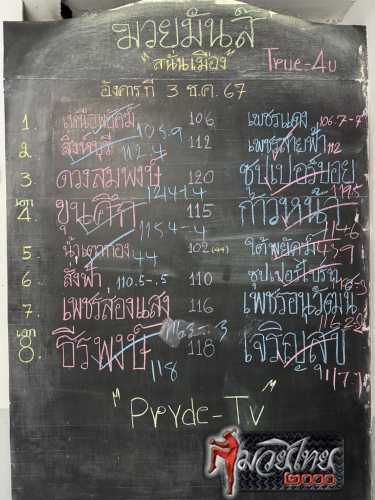 มวยมันส์
"สนั่นเมือง" True-4u
อังคารที่ 3 ธ.ค. 67
1. เหนือพยัคฆ์ 106 เพชรแดง 106.7-.7
105.9
2. สิงห์บุรี 112 เพชรสายฟ้า 112
112.4
3. ดวงสมพงษ์ 120 ซุปเปอร์บอย
เอก
4. ขุนศึก 115 ก้าวหน้า
115.4-.4
5. น้ำตาทอง 102 ใต้พยัคฆ์
6. สิงฟ้า 110.5-.5 110
7. เพชรส่องแสง 116 เพชรอนุวัฒน์
เอก
8. ธีรพงษ์ 118 เจริญสุข
118 117.7
"Pryde-TV"
มวยไทย
๒๐๐๐